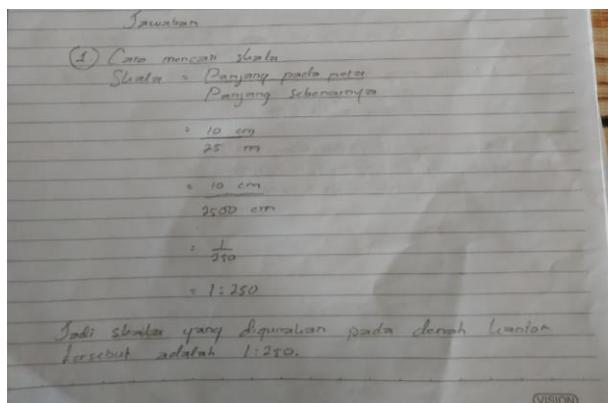 Jawaban
1. Cara mencari skala
Skala = Panjang pada peta
Panjang sebenarnya
= 10 cm
25 m
= 10 cm
2500 cm
= 1
250
= 1 : 250
Jadi skala yang digunakan pada denah kantor
tersebut adalah 1:250.
VISION